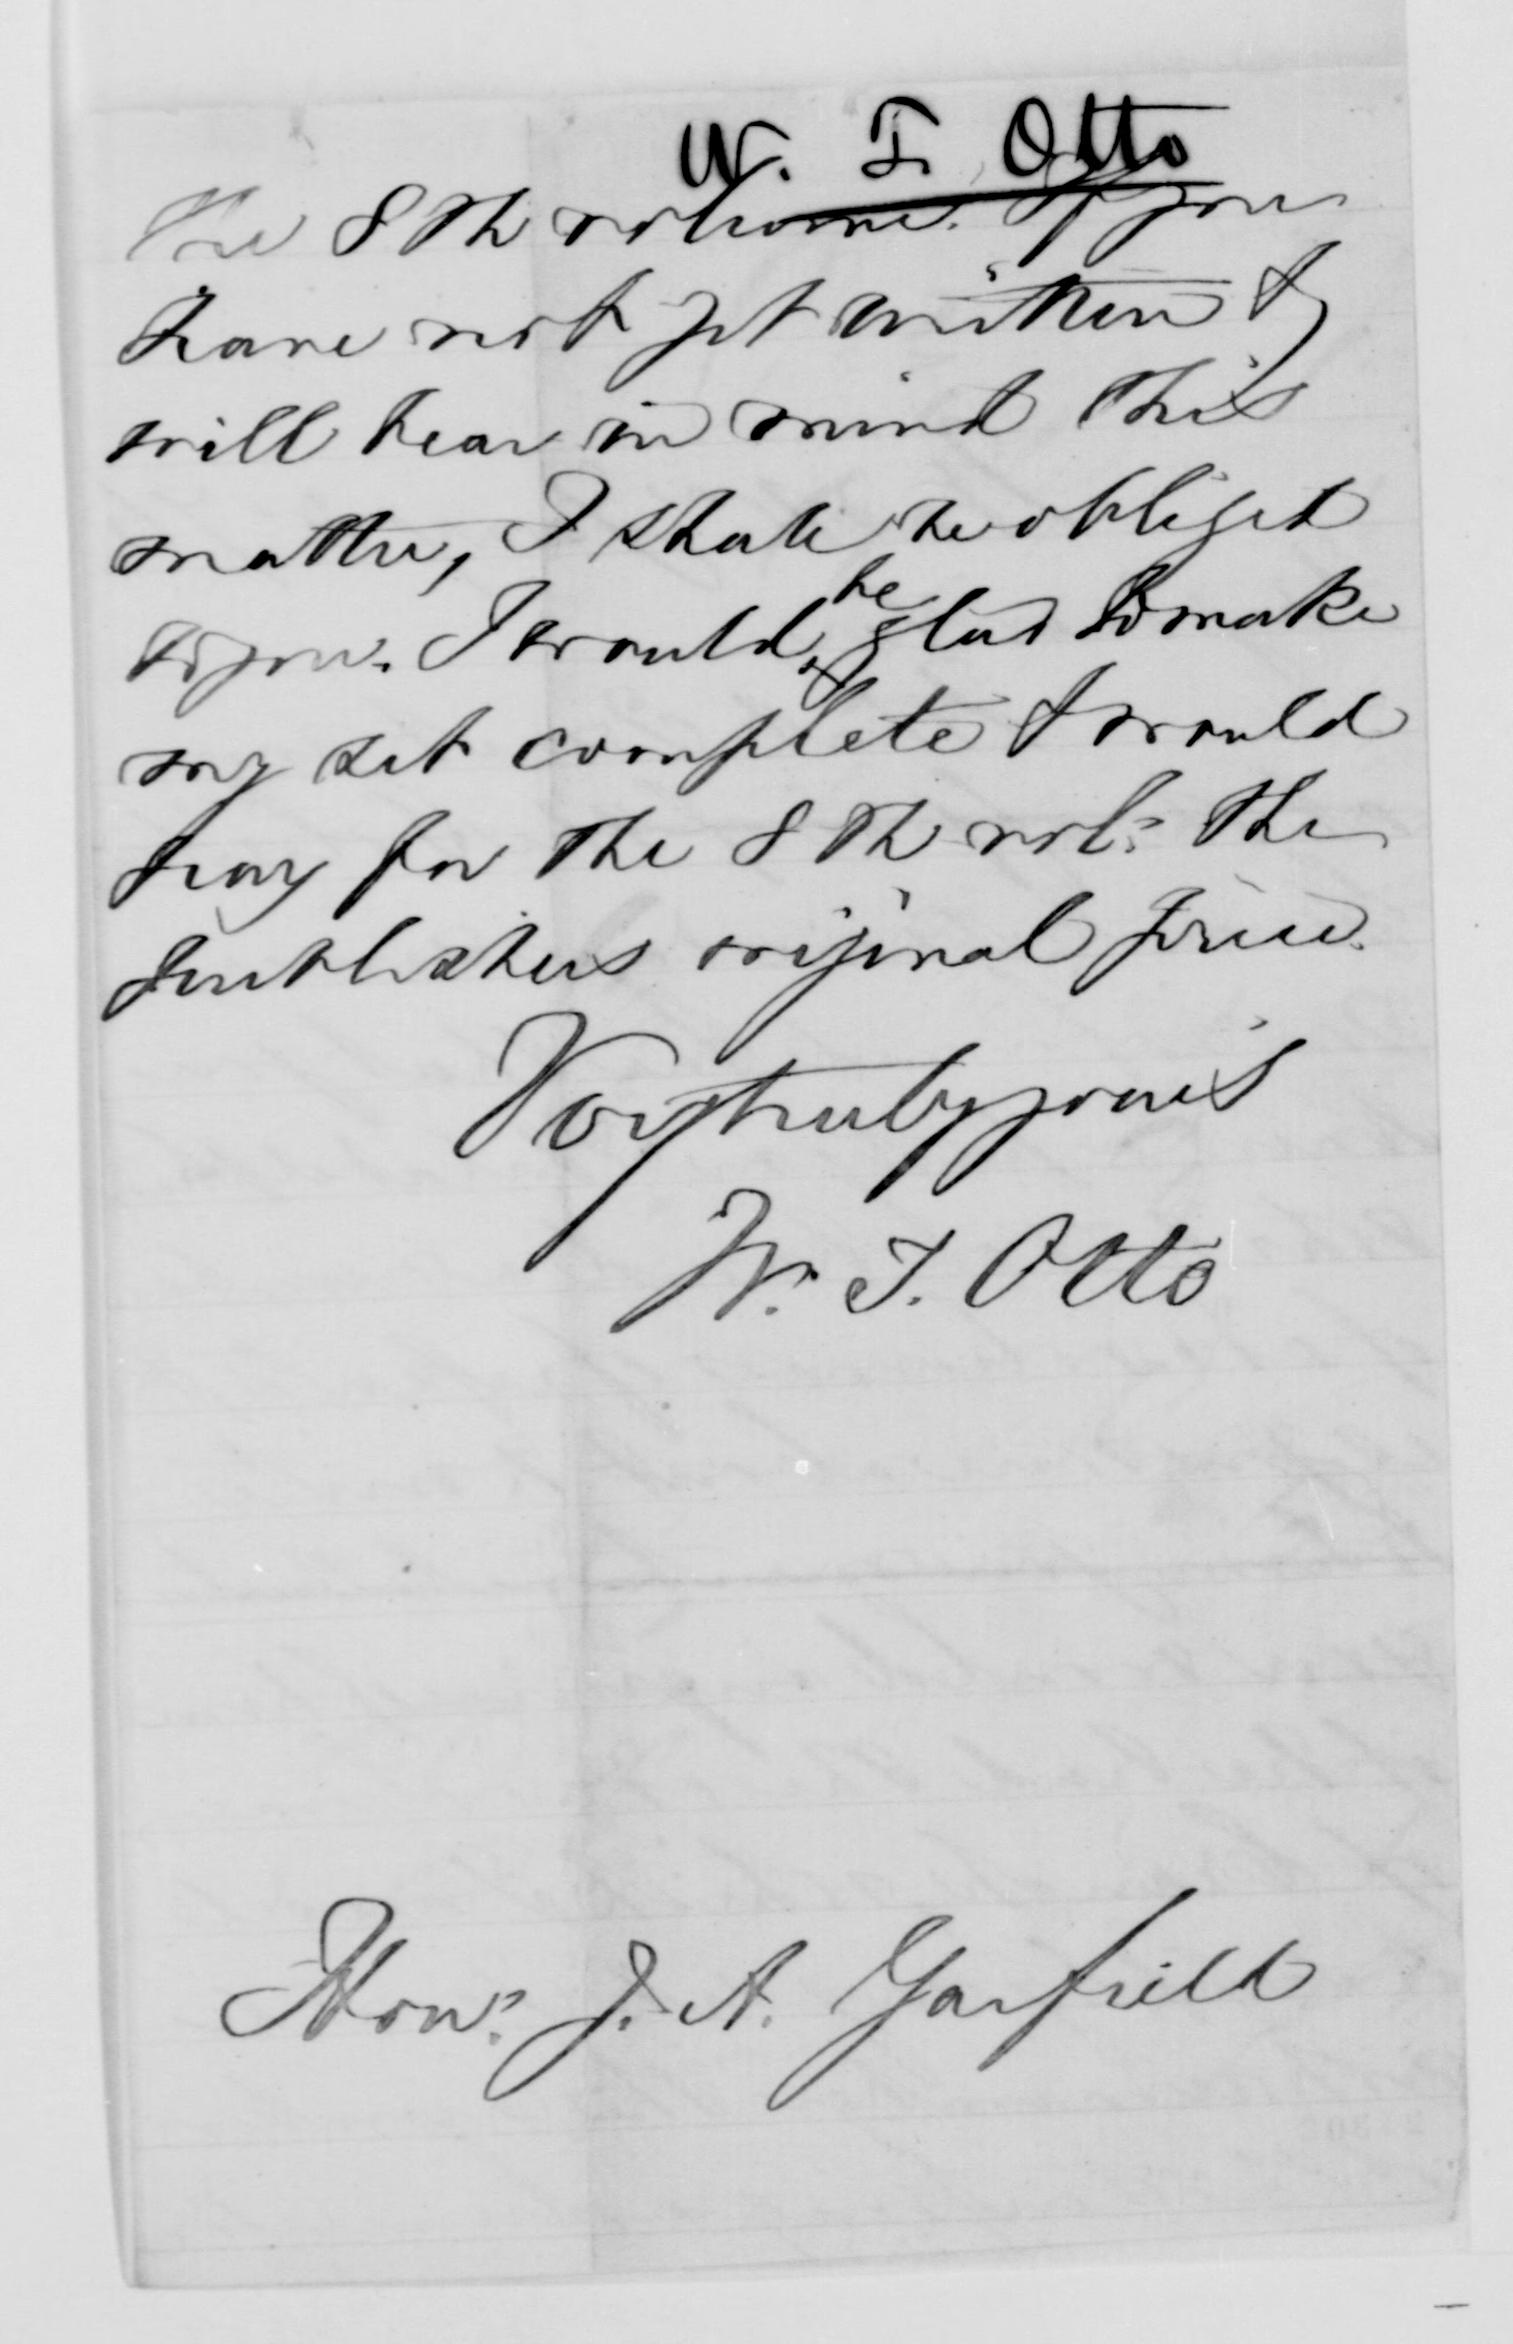 W. T. Otto
the 8th volume. If you
have not yet written &
will bear in mind this
matter, I shall be obliged
to you. I would ^be glad to make
my set complete & would
pay for the 8th vol: the
publishers original price.
Very truly yours
W. T. Otto
Hon: J. A. Garfield